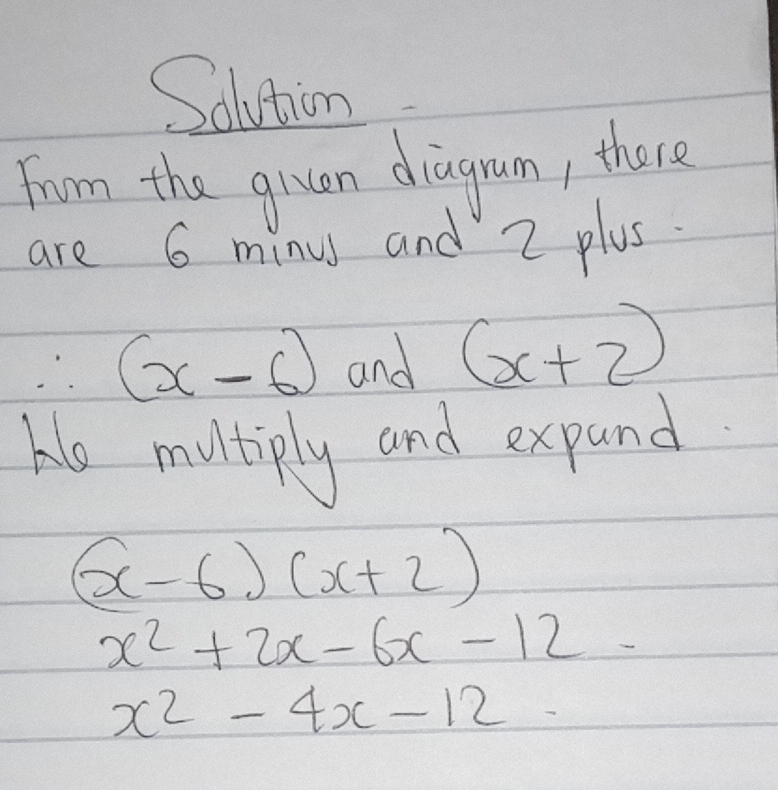 Solution
From the given diagram, there
are 6 minus and 2 plus.
∴ (x - 6) and (x + 2)
We multiply and expand.
(x - 6) (x + 2)
x² + 2x - 6x - 12.
x² - 4x - 12.